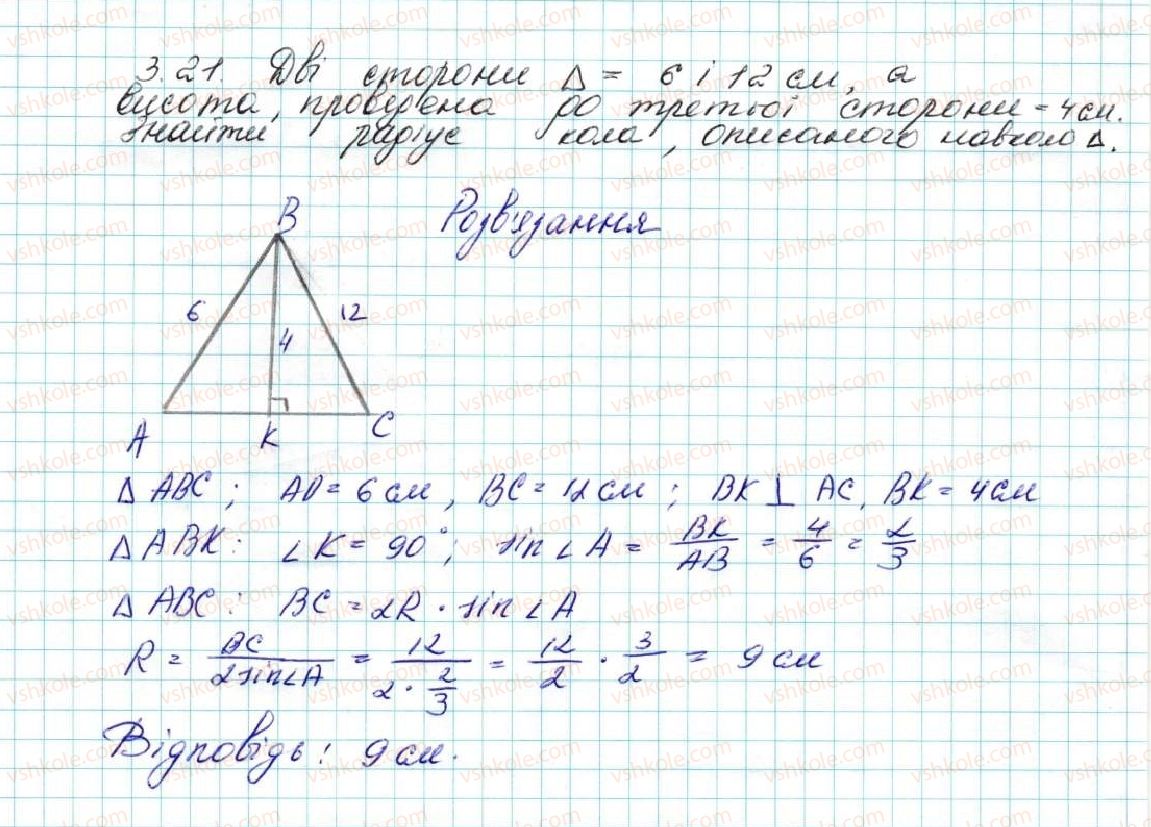 3.21. Дві сторони Δ = 6 і 12 см, а
висота, проведена до третьої сторони = 4 см.
Знайти радіус кола, описаного навколо Δ.
Розв'язання
B
6
12
4
A
K
C
Δ ABC; AD = 6 см, BC = 12 см; BK ⊥ AC, BK = 4 см
Δ ABK: ∠K = 90°; sin∠A = BK/AB = 4/6 = 2/3
Δ ABC: BC = 2R · sin∠A
R = BC/2sin∠A = 12/(2 · 2/3) = 12/2 · 3/2 = 9 см
Відповідь: 9 см.
vshkole.com